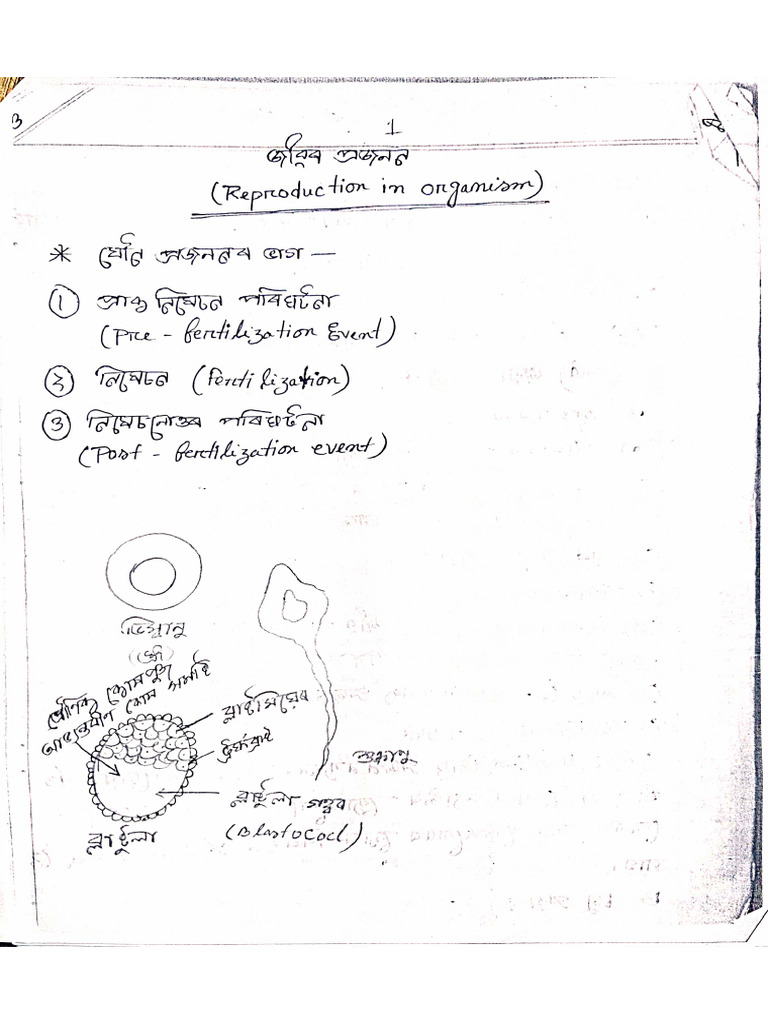 1
জীৱৰ প্ৰজনন
(Reproduction in organism)
* যৌন প্ৰজননৰ ভাগ —
① প্ৰাক্ নিষেচন পৰিঘটনা
(Pre - fertilization Event)
② নিষেচন (Fertilization)
③ নিষেচনোত্তৰ পৰিঘটনা
(Post - fertilization event)
ডিম্বাণু
ভ্ৰৌণিক কোষপুঞ্জ
আভ্যন্তৰীণ কোষ সমষ্টি
ব্লাষ্টমিয়েৰ
ট্ৰফব্লাষ্ট
শুক্ৰাণু
ব্লাষ্টুলা গহ্বৰ
(Blastocoel)
ব্লাষ্টুলা